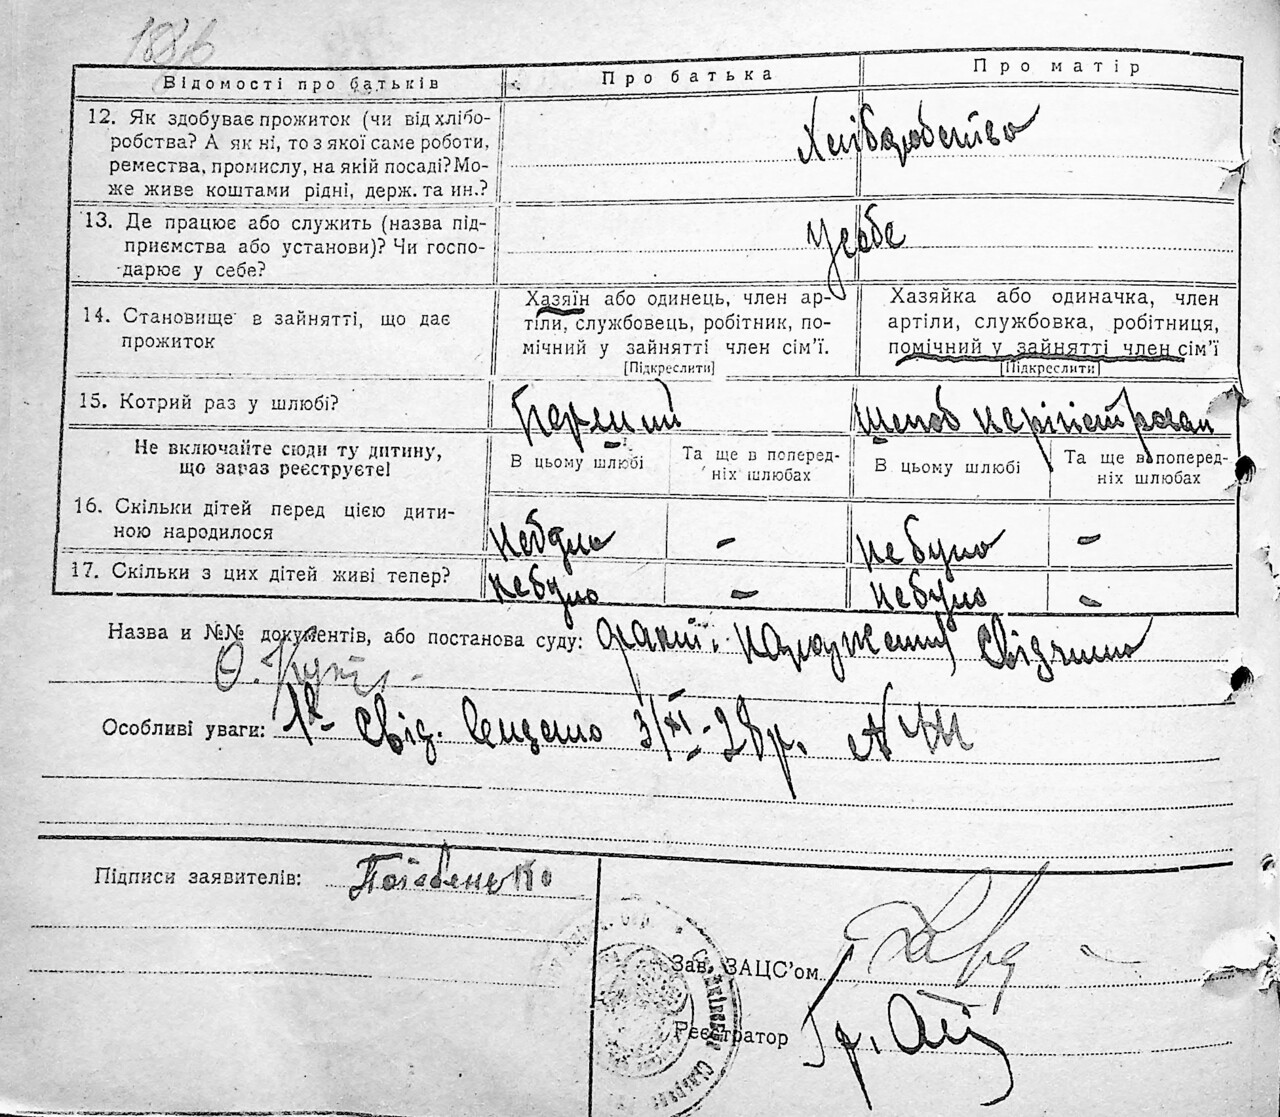 Відомості про батьків
Про батька
Про матір
12. Як здобуває прожиток (чи від хлібо-
робства? А як ні, то з якої саме роботи,
ремества, промислу, на якій посаді? Мо-
же живе коштами рідні, держ. та ин.?
Хліборобство
13. Де працює або служить (назва під-
приємства або установи)? Чи госпо-
дарює у себе?
У себе
14. Становище в зайнятті, що дає
прожиток
Хазяїн або одинець, член ар-
тіли, службовець, робітник, по-
мічний у зайнятті член сім'ї.
[Підкреслити]
Хазяйка або одиначка, член
артіли, службовка, робітниця,
помічний у зайнятті член сім'ї
[Підкреслити]
15. Котрий раз у шлюбі?
Перший
шлюб
Не включайте сюди ту дитину,
що зараз реєструєте!
В цьому шлюбі
Та ще в поперед-
ніх шлюбах
В цьому шлюбі
Та ще в поперед-
ніх шлюбах
16. Скільки дітей перед цією дити-
ною народилося
небуло
-
небуло
-
17. Скільки з цих дітей живі тепер?
небуло
-
небуло
-
Назва и №№ документів, або постанова суду: факт народження
Особливі уваги: Свід. 3/XI-28р.
Підписи заявителів:
Зав. ЗАЦС'ом
Реєстратор